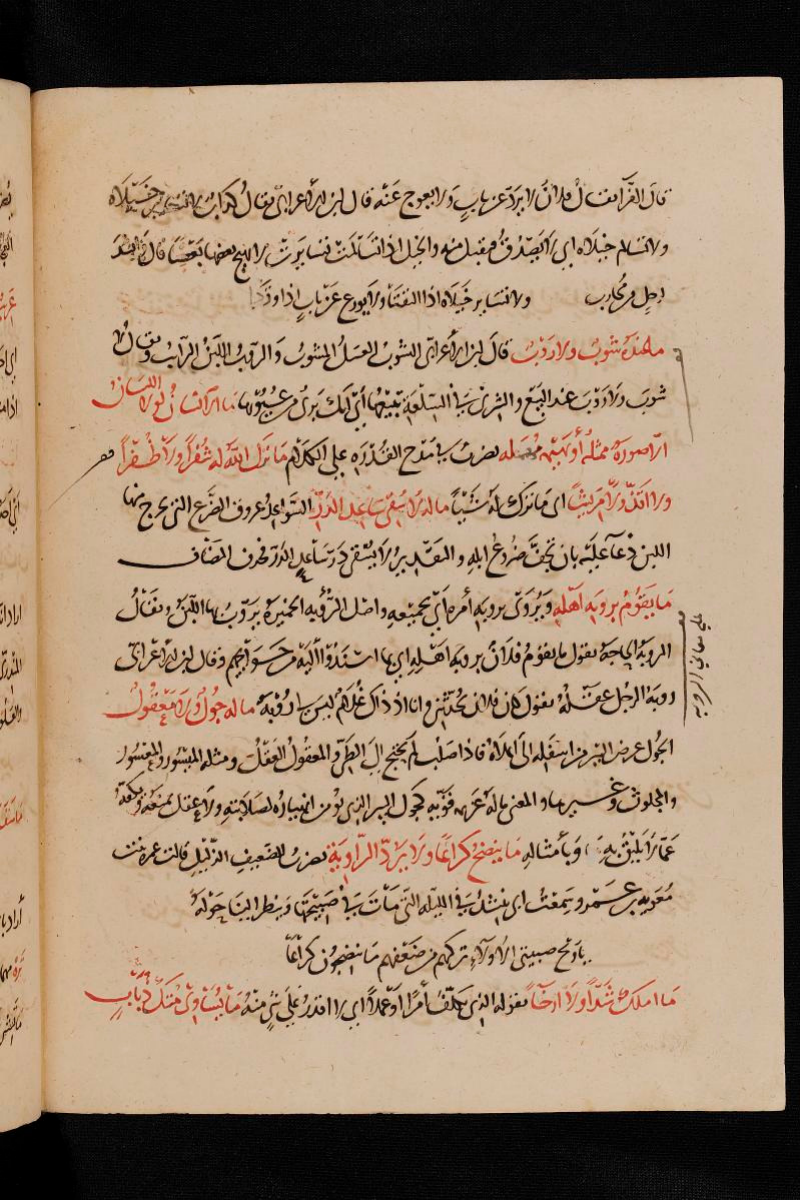 قال الفرآ يقال فلان لا يردّ عن باب ولا يعوج عنه قال ابن الاعرابي يقال كذاب لا تساير خيلاه
ولا تسالم خيلاه اي لا يصدق فيقبل منه والخيل اذا تسالمت تسايرت لا يهيج بعضها بعضا قال
رجل من محارب ولا تساير خيلاه اذا التقتا ولا يورع عن باب اذا وقفا
ما عنده شوب ولا روب قال ابن الاعرابي الشوب العسل المشوب والروب اللبن الرايب ويقال لا
شوب ولا روب عند البيع والشرى في السلعة تبيعها اي انك بري من عيوبها ما الانسان لولا اللسان
الا صورة ممثلة او بهيمة مهملة يضرب في مدح القدرة على الكلام ما ترك الله له شفرا ولا ظفرا
ولا اقذ ولا مريشا اى ما ترك له شيئا ما له لا سقى ساعد الدر السواعد عروق الضرع التى يخرج منها
اللبن دعا عليه بان تجف ضروع ابله والتقدير لا سقى در ساعد الدر فحذف المضاف
ما يقوم بروبة اهله ويروى بروبة امره اي بجميعه واصل الروبة الخميرة يروب بها اللبن ويقال
الروبة الحاجة يقول ما يقوم فلان بروبة اهله اي بما اسندوا اليه من حوايجهم وقال ابن الاعرابي
روبة الرجل عقله يقول كان فلان يحدثني وانا اذ ذاك غلام ليس لي روبة ما له جول ولا معقول
الجول عرض البير من اسفله الى اعلاه فاذا صلب لم يحتج الى الطي والمعقول العقل ومثله الميسور والمعسور
والمجلود وغيرها والمعنى ماله عزيمة قوية كجول البير الذي يؤمن انهياره لصلابته ولا عقل يمنعه ويكفه
عما لا يليق به وبامثاله ما ينضج كراعا ولا يرد الراوية يضرب للضعيف الذليل قالت عمرة بنت
معوية بن عمرو سمعت ابي ينشد في الليلة التي مات في صبيحتها وينظر الينا حوله
يا ويح صبيتى الاولاء تركهم من ضعفهم ما ينضجون كراعا
ما املك شدا ولا ارخا يقوله الذي يكلف امرا او عملا اي لا اقدر على شي منه ما يساوى متك ذباب
على معاني الروبة